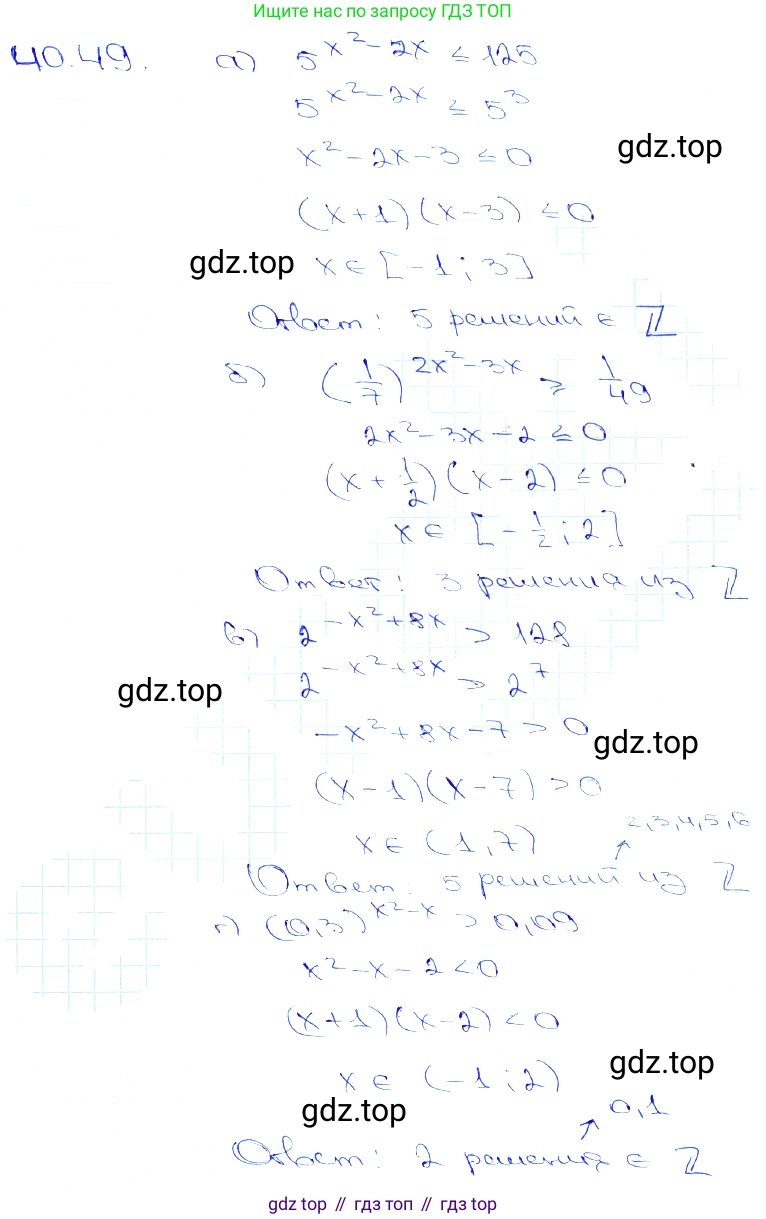 Ищите нас по запросу ГДЗ ТОП
40.49. а) 5^{x²-2x} ≤ 125
5^{x²-2x} ≤ 5³
x² - 2x - 3 ≤ 0
gdz.top
(x+1)(x-3) ≤ 0
gdz.top
x ∈ [-1; 3]
Ответ: 5 решений ∈ ℤ
б) (1/7)^{2x²-3x} ≥ 1/49
2x² - 3x - 2 ≤ 0
(x + 1/2)(x - 2) ≤ 0
x ∈ [-1/2; 2]
Ответ: 3 решения из ℤ
в) 2^{-x²+8x} > 128
2^{-x²+8x} > 2⁷
gdz.top
-x² + 8x - 7 > 0
gdz.top
(x-1)(x-7) > 0
x ∈ (1, 7)
2,3,4,5,6
Ответ: 5 решений из ℤ
г) (0,3)^{x²-x} > 0,09
x² - x - 2 < 0
(x+1)(x-2) < 0
gdz.top
x ∈ (-1; 2)
gdz.top
0,1
Ответ: 2 решения ∈ ℤ
gdz top // гдз топ // гдз top